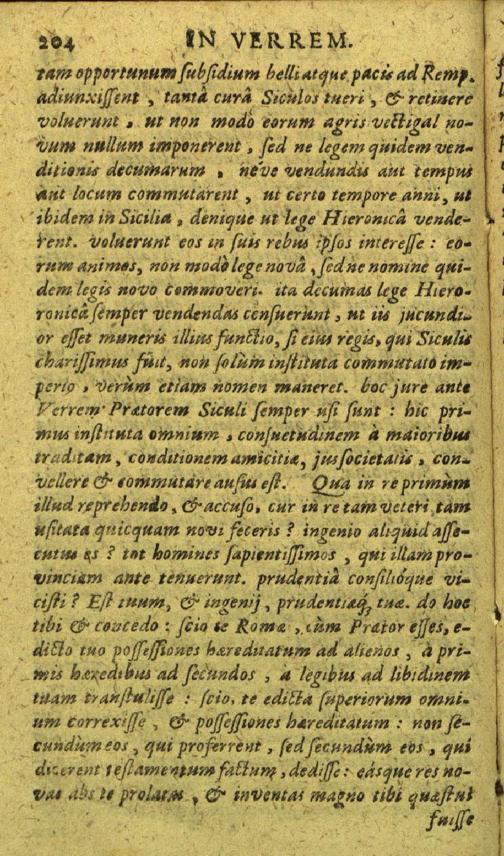 204 IN VERREM.
tam opportunum subsidium belli atque pacis ad Remp.
adiunxissent , tantâ curâ Siculos tueri , & retinere
voluerunt , ut non modò eorum agris vectigal no-
vum nullum imponerent , sed ne legem quidem ven-
ditionis decumarum , neve vendundis aut tempus
aut locum commutarent , ut certo tempore anni , ut
ibidem in Sicilia , denique ut lege Hieronicâ vende-
rent. voluerunt eos in suis rebus ipsos interesse : eo-
rum animos, non modò lege novâ , sed ne nomine qui-
dem legis novo commoveri. ita decumas lege Hiero-
nicâ semper vendendas censuerunt , ut iis jucundi-
or esset muneris illius functio, si eius regis, qui Siculis
charissimus fuit, non solùm instituta commutato im-
perio , verùm etiam nomen maneret. hoc jure ante
Verrem Prætorem Siculi semper usi sunt : hic pri-
mus instituta omnium , consuetudinem à maioribus
traditam, conditionem amicitiæ, jus societatis , con-
vellere & commutare ausus est. Qua in re primum
illud reprehendo, & accuso, cur in re tam veteri, tam
usitata quicquam novi feceris ? ingenio aliquid asse-
cutus es ? tot homines sapientissimos , qui illam pro-
vinciam ante tenuerunt. prudentiâ consilióque vi-
cisti ? Est tuum, & ingenij, prudentiæq́; tuæ. do hoc
tibi & concedo : scio te Romæ , cùm Prætor esses, e-
dicto tuo possessiones hæreditatum ad alienos , à pri-
mis hæredibus ad secundos , a legibus ad libidinem
tuam transtulisse : scio, te edicta superiorum omni-
um correxisse , & possessiones hæreditatum : non se-
cundùm eos , qui proferrent , sed secundùm eos , qui
dicerent testamentum factum, dedisse : eásque res no-
vas abs te prolatas , & inventas magno tibi quæstui
fuisse